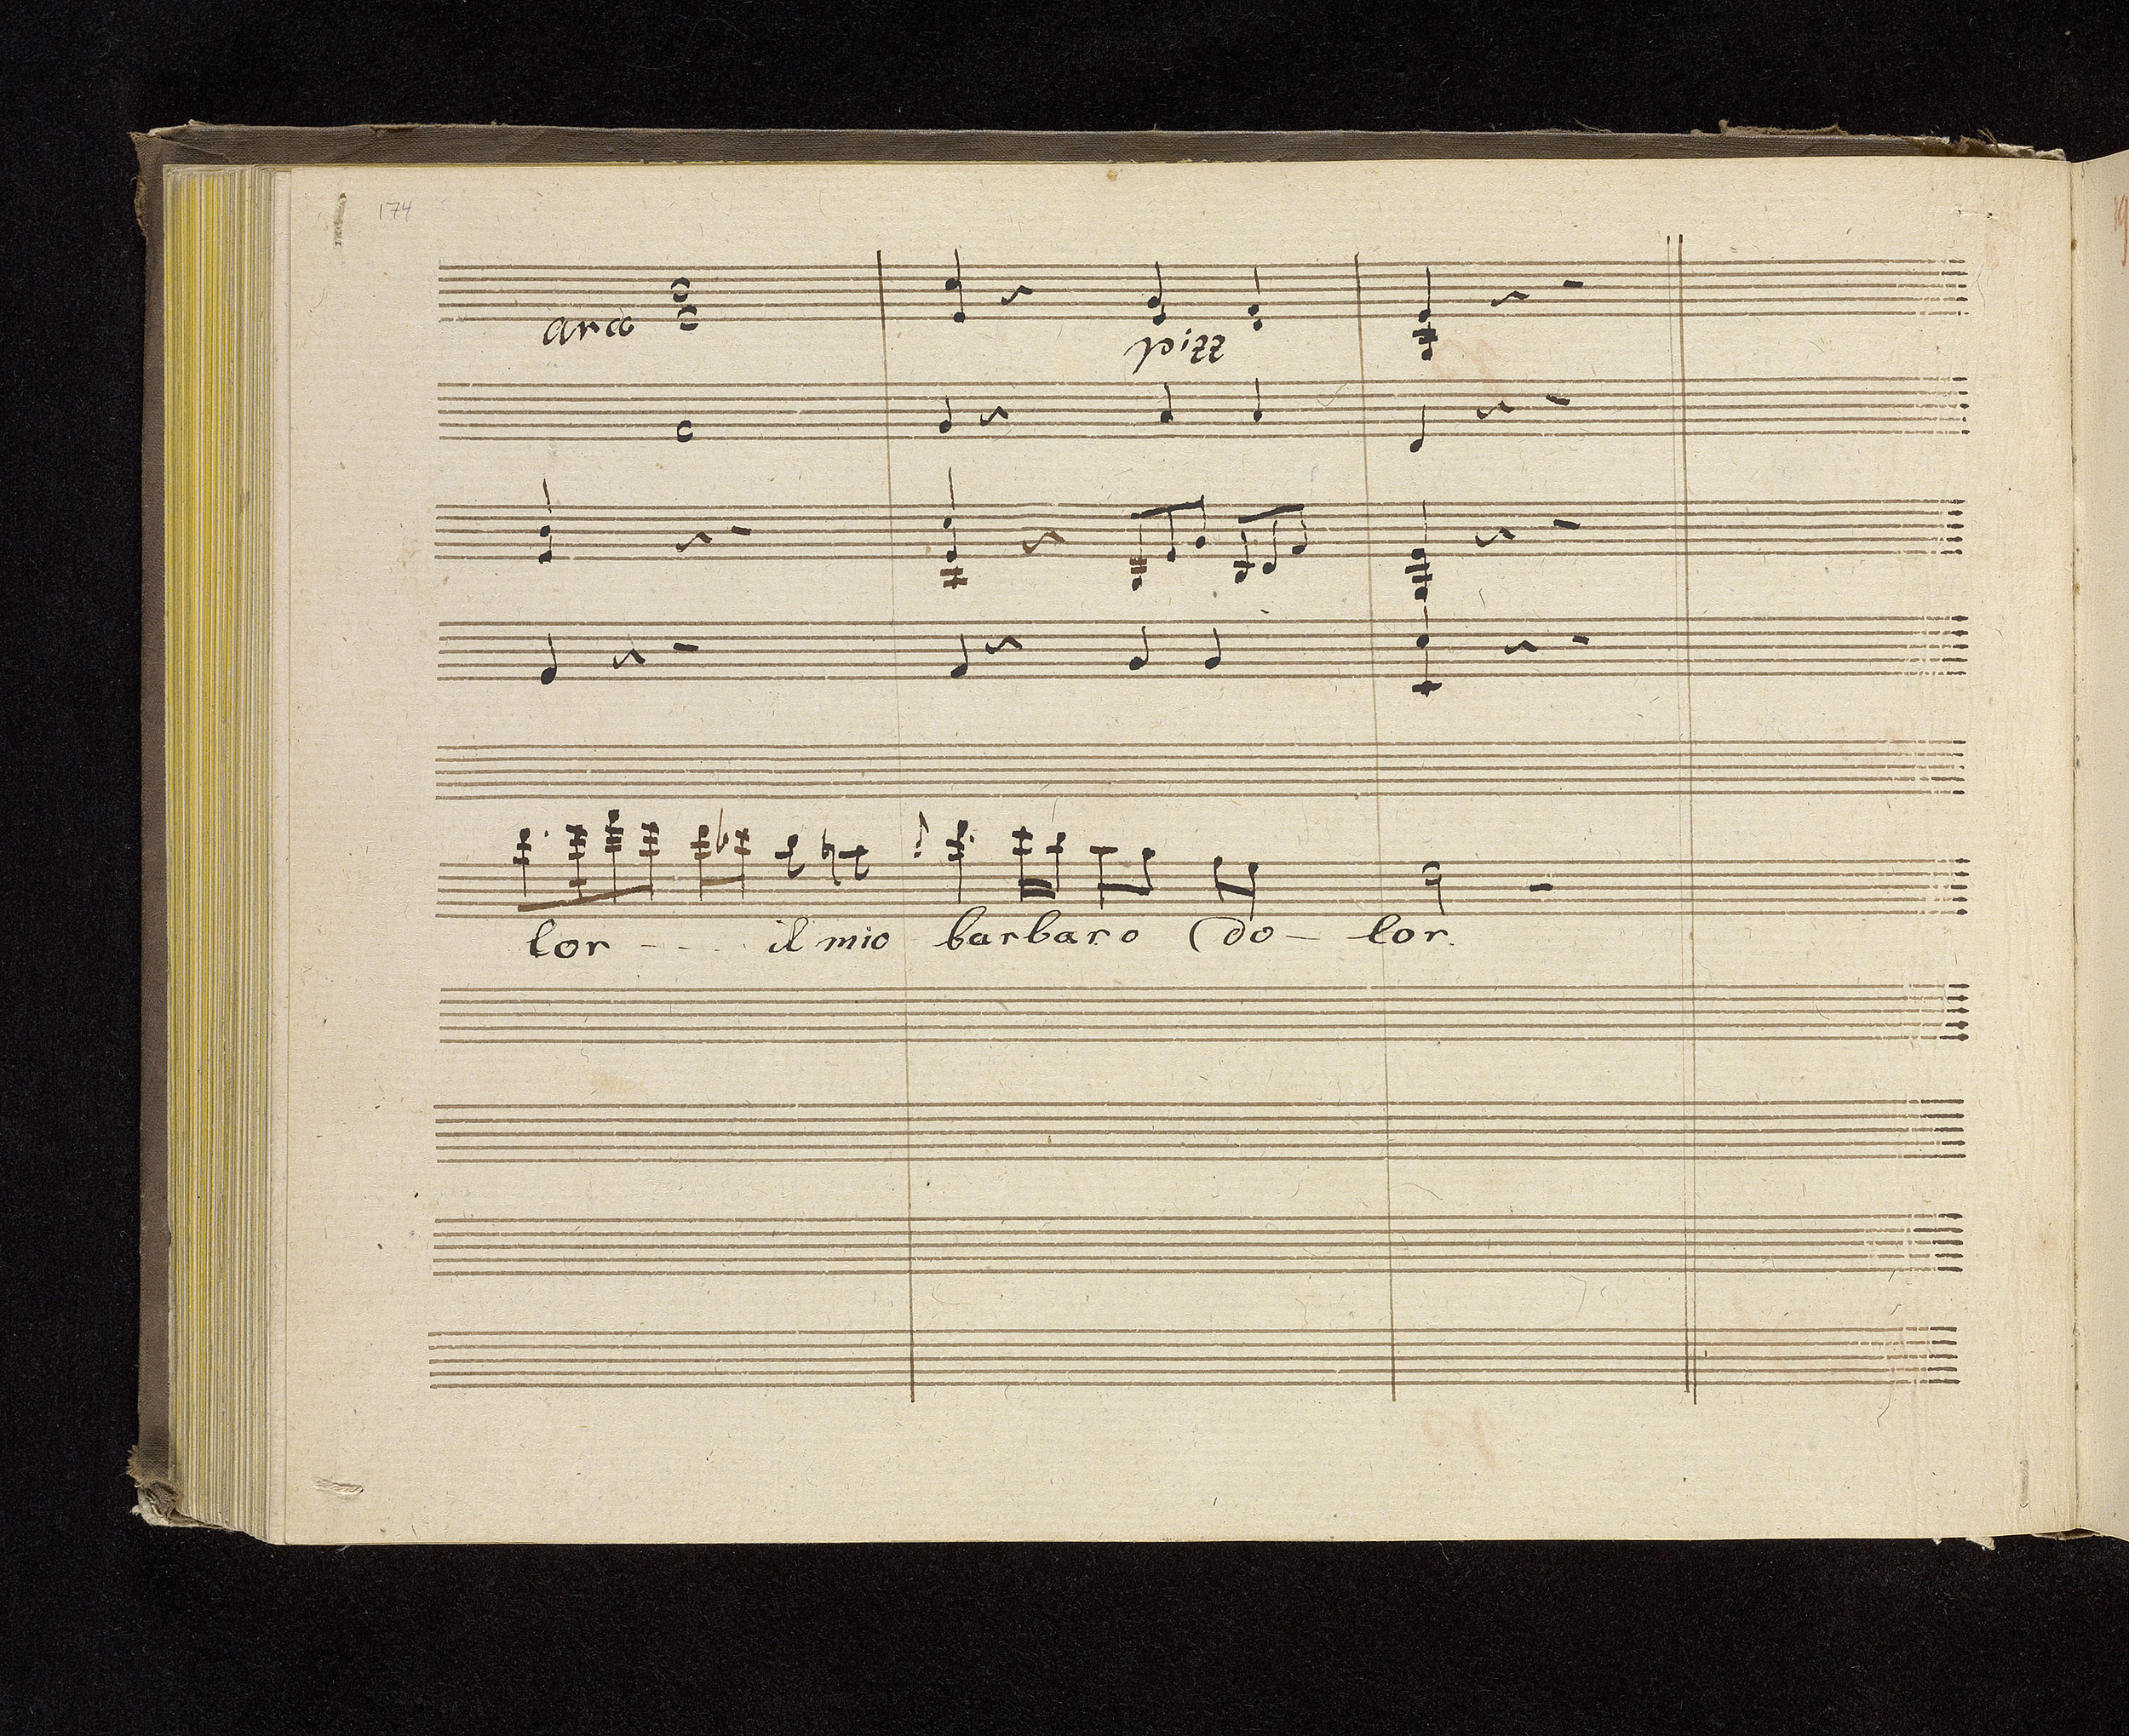 174
arco
pizz
lor - - - - il mio barbaro do - lor.